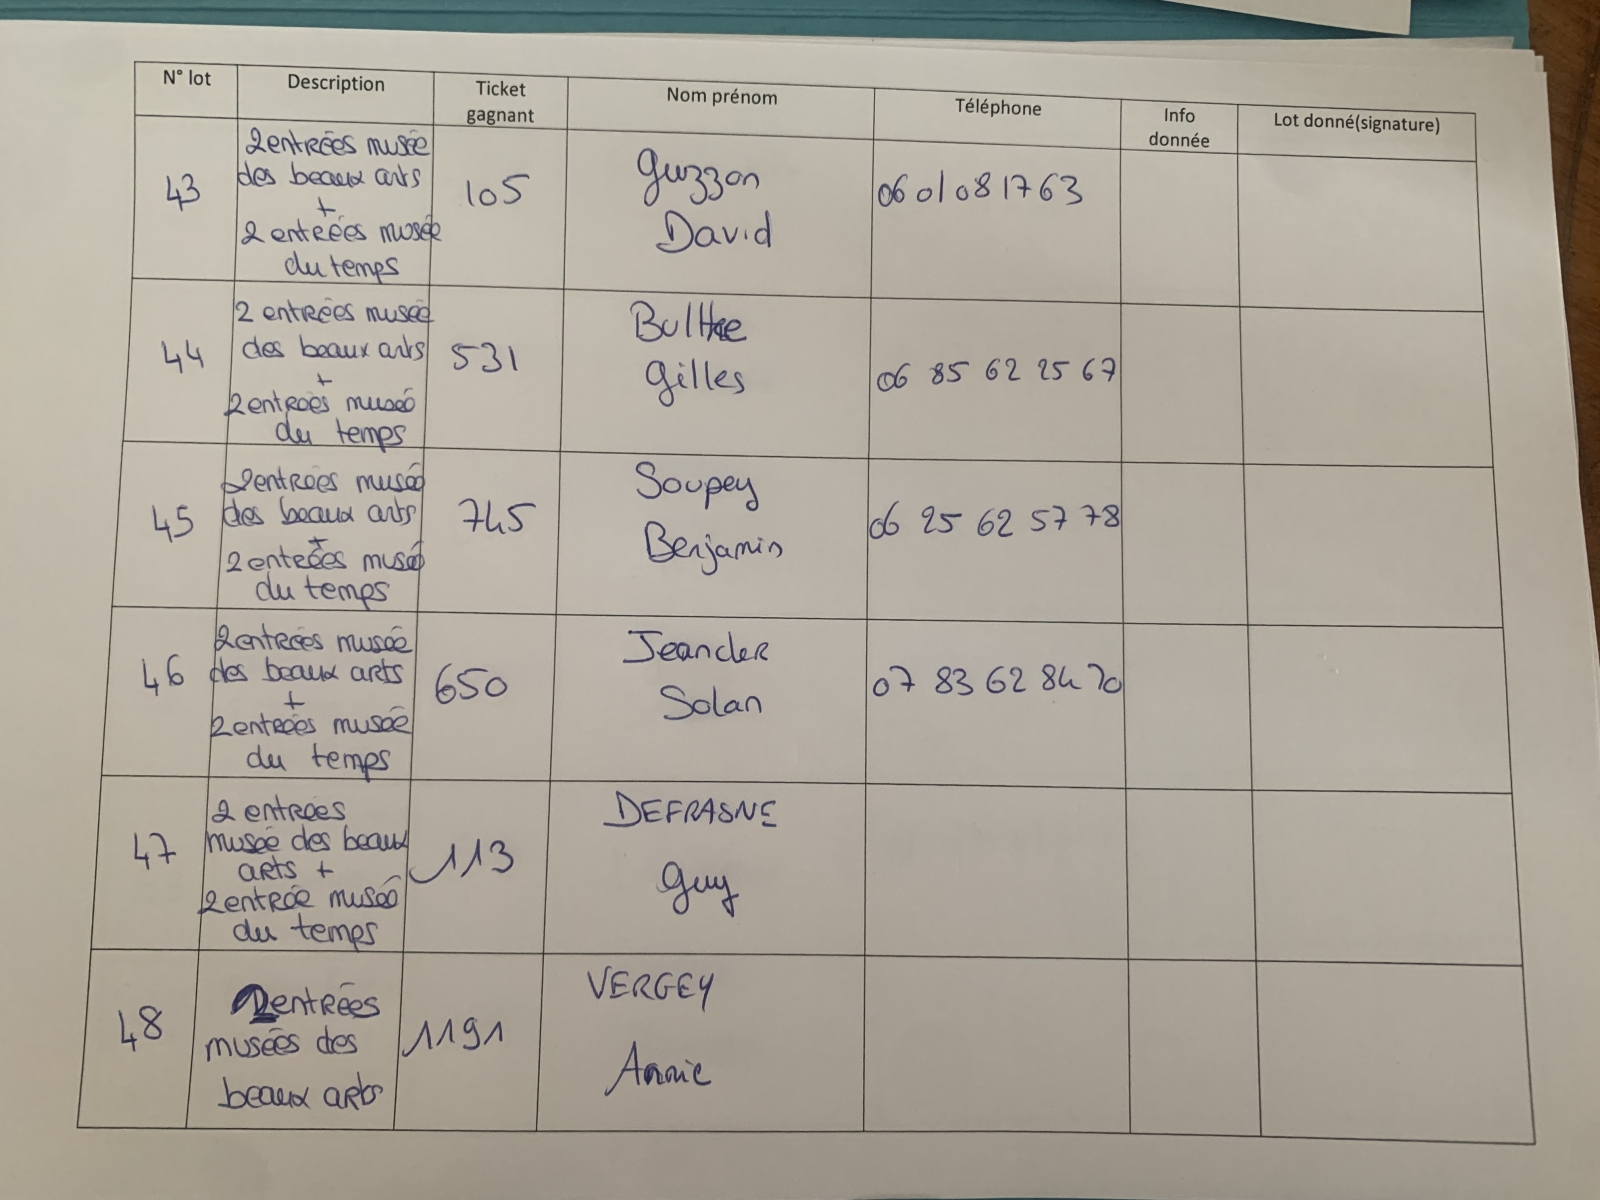 N° lot Description Ticket gagnant Nom prénom Téléphone Info donnée Lot donné(signature)
43
2 entrées musée
des beaux arts
+
2 entrées musée
du temps
105
Guzzon
David
06 01 08 17 63
44
2 entrées musée
des beaux arts
+
2 entrées musée
du temps
531
Gilles
06 85 62 25 67
45
2 entrées musée
des beaux arts
+
2 entrées musée
du temps
745
Soupey
Benjamin
06 25 62 57 78
46
2 entrées musée
des beaux arts
+
2 entrées musée
du temps
650
Jeancler
Solan
07 83 62 84 70
47
2 entrées
musée des beaux
arts +
2 entrée musée
du temps
113
DEFRASNE
Guy
48
2 entrées
musées des
beaux arts
1191
VERGEY
Annie